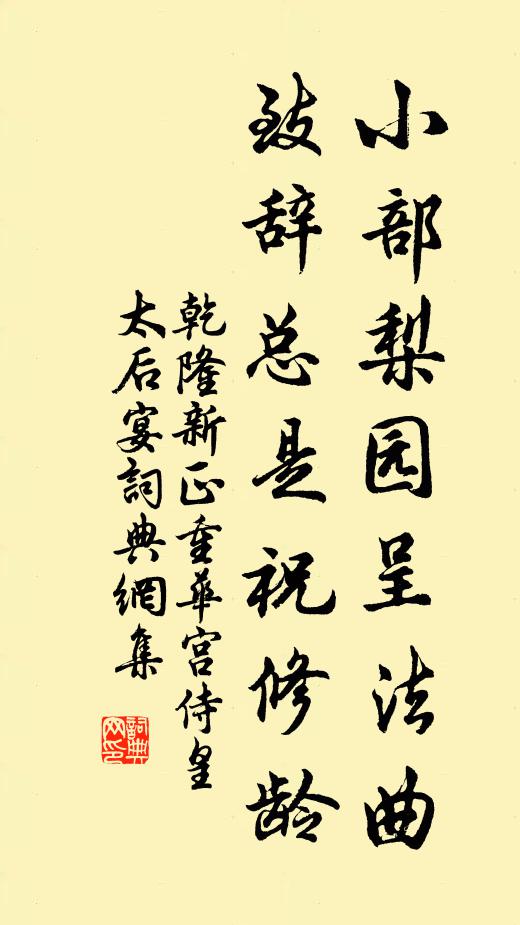 小部梨园呈法曲
致辞总是祝修龄
乾隆新正重华宫侍皇
太后宴詞典網集
詞典網印